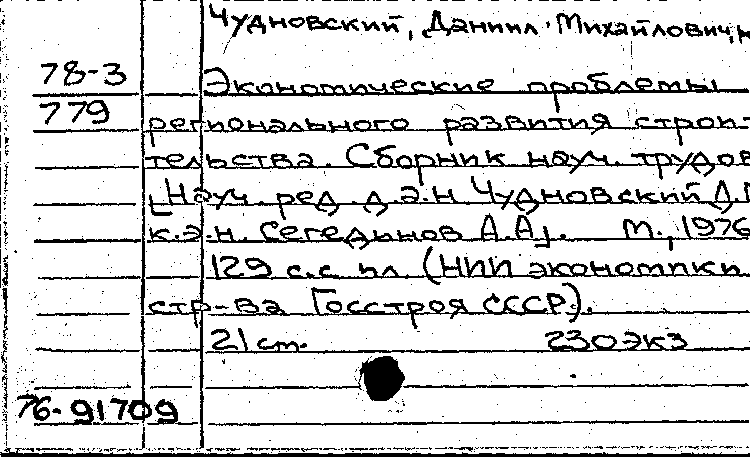 Чудновский, Даниил Михайлович, н
78-3 Экономические проблемы
779 регионального развития строи-
тельства. Сборник науч. трудов
[Науч. ред. д.э.н Чудновский Д.
к.э.н. Сегединов А.А]. М., 1976
129 с.с ил. (НИИ экономики
стр-ва Госстроя СССР).
21 ст. 230 экз
76-91709